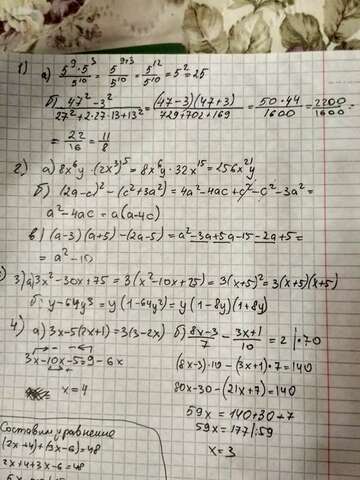 1) а) 5⁹·5³/5¹⁰ = 5⁹⁺³/5¹⁰ = 5¹²/5¹⁰ = 5² = 25
б) 47²-3²/27²+2·27·13+13² = (47-3)(47+3)/729+702+169 = 50·44/1600 = 2200/1600 =
= 22/16 = 11/8
2) а) 8x⁶y·(2x³)⁵ = 8x⁶y·32x¹⁵ = 256x²¹y
б) (2a-c)²-(c²+3a²) = 4a²-4ac+c²-c²-3a² =
a²-4ac = a(a-4c)
в) (a-3)(a+5)-(2a-5) = a²-3a+5a-15-2a+5 =
= a²-10
3) а) 3x²-30x+75 = 3(x²-10x+25) = 3(x+5)² = 3(x+5)(x+5)
б) y-64y³ = y(1-64y²) = y(1-8y)(1+8y)
4) а) 3x-5(2x+1) = 3(3-2x)
3x-10x-5=9-6x
x=4
б) 8x-3/7 - 3x+1/10 = 2 |·70
(8x-3)·10-(3x+1)·7=140
80x-30-(21x+7)=140
59x = 140+30+7
59x = 177|:59
x=3
Составим уравнение
(2x+4)+(3x-6)=48
2x+4+3x-6=48